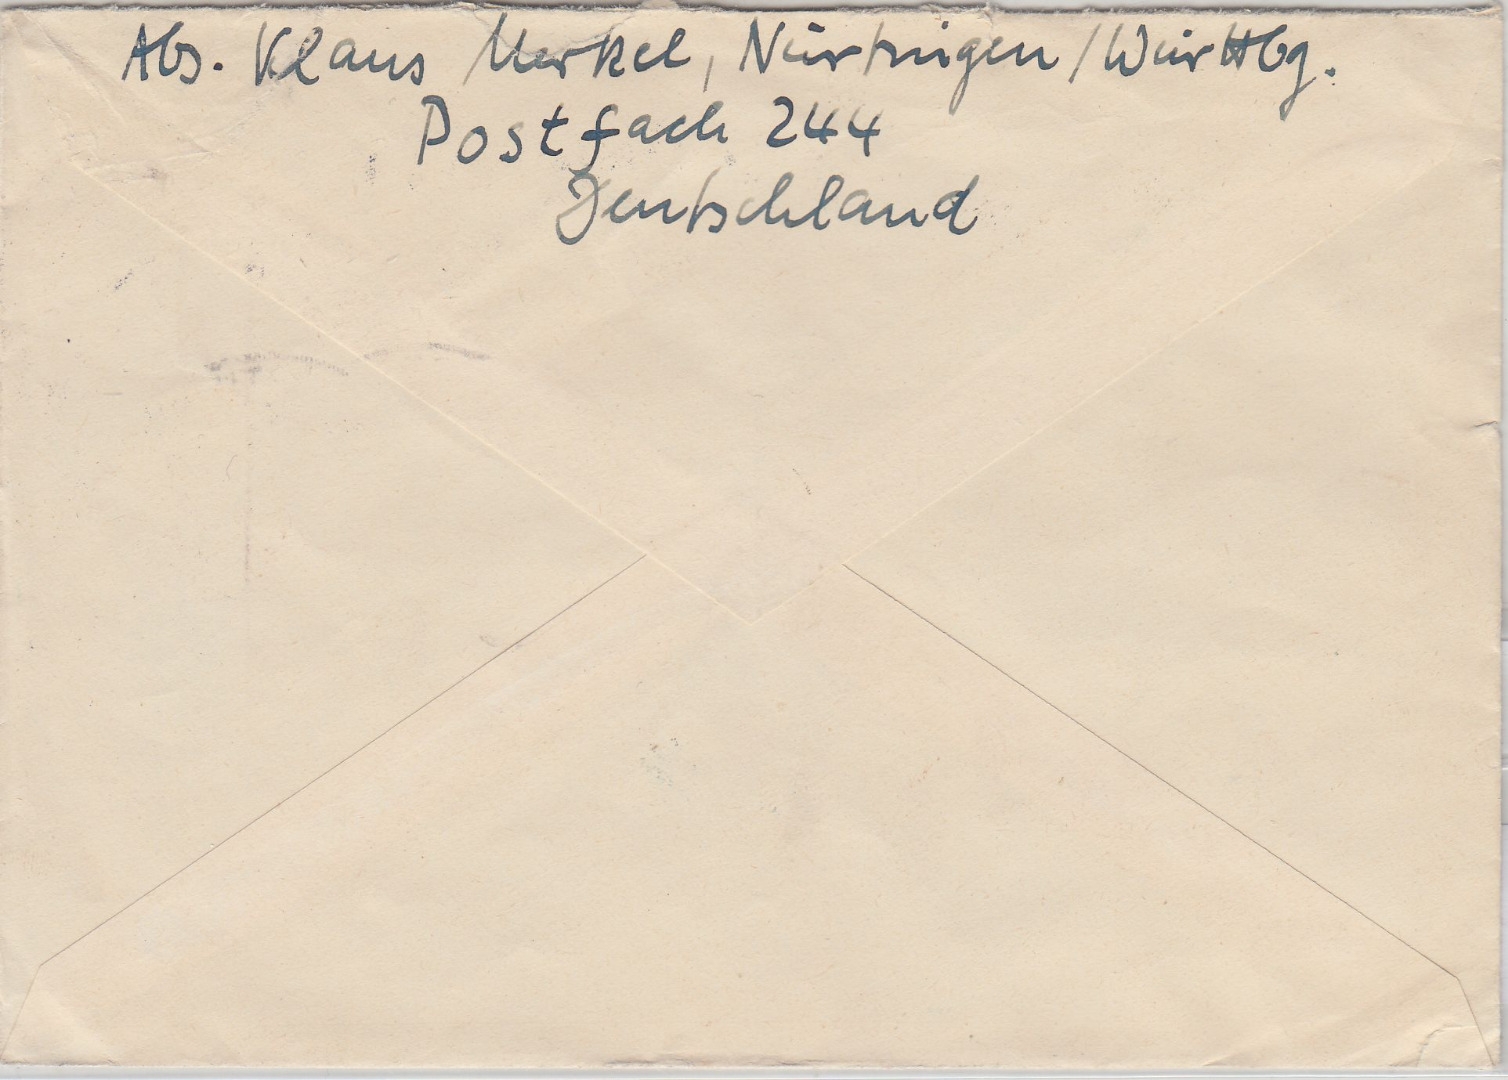 Abs. Klaus Merkel, Nürtingen/Württbg.
Postfach 244
Deutschland